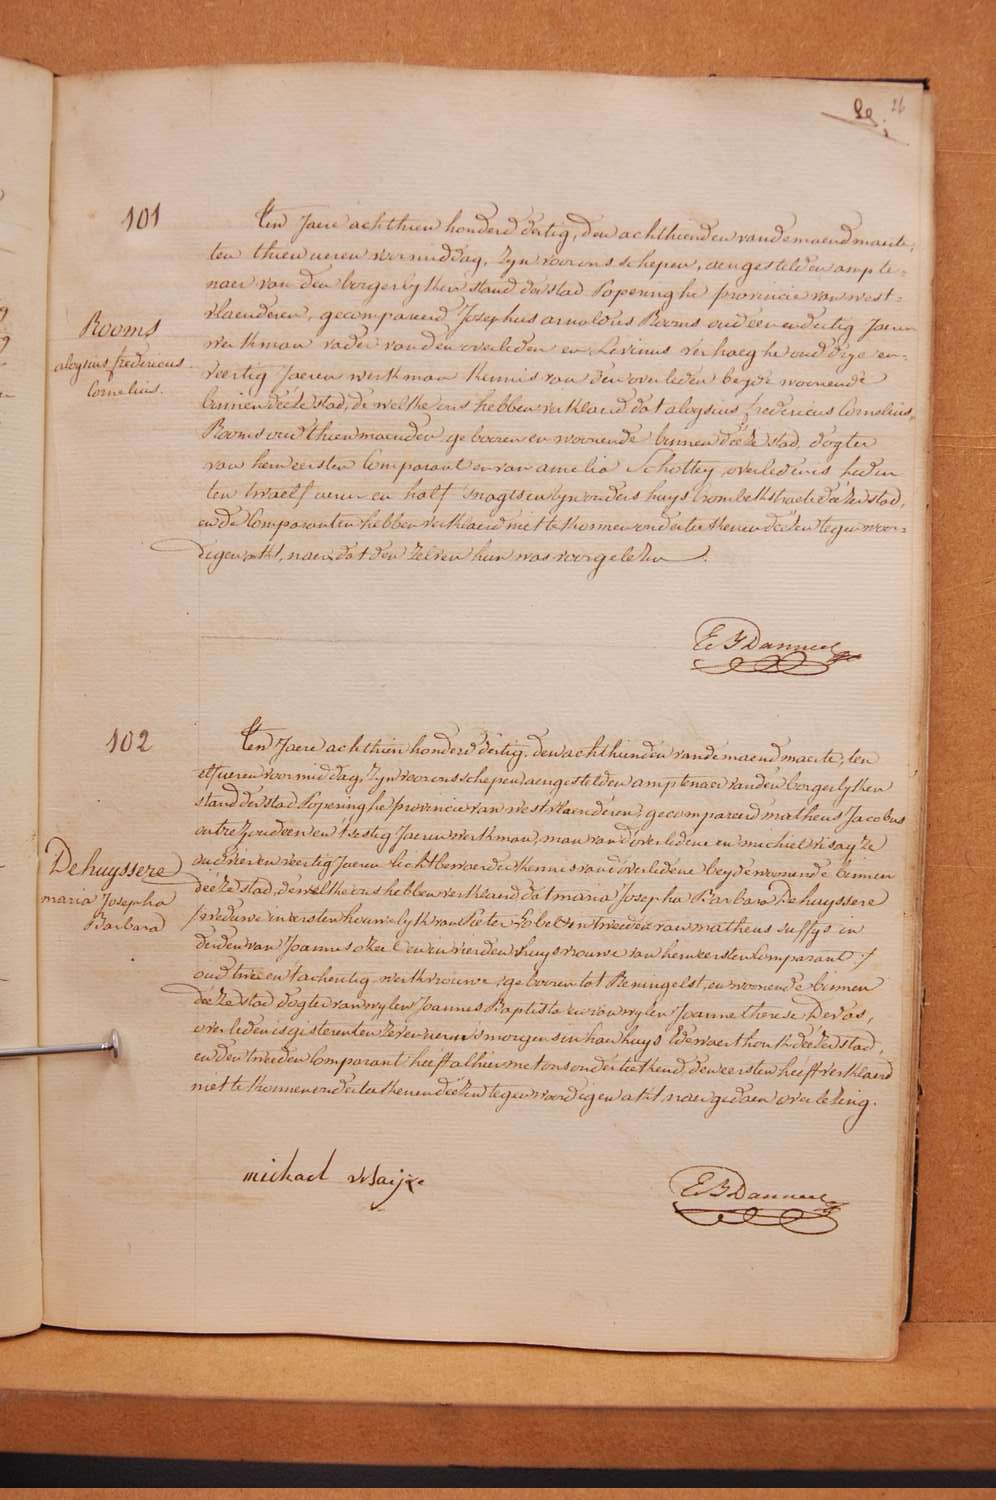 26
101
Rooms
aloysius fredericus
Cornelius.
Ten Jaere achthien honderd dertig, den achthienden van de maend maerte,
ten thien ueren voormiddag, zyn voor ons schepen, aengestelden ampte-
naer van den borgerlyken stand der stad Poperinghe provincie van west-
vlaenderen, gecompareerd Josephus arnoldus Rooms oud een en dertig Jaeren
werkman vader van den overleden en Livinus Verhaeghe oud drye en
veertig Jaeren werkman kennis van den overleden beyde woonende
binnen deéze stad, de welke ons hebben verklaerd dat aloysius fredericus Cornelius
Rooms oud thien maenden geboren en woonende binnen deéze stad, dogter
van hem eersten Comparant en van amelia Schottey, overleden is heden
ten twaelf ueren en half snagts in zyn ouders huys boombekstraete déézer stad,
en de Comparanten hebben verklaerd niet te konnen onderteekenen deézen tegenwoor-
digen akt, naer dat den zelven hun was voorgelezen.
102
Dehuyssere
maria Josepha
Barbara
Ten Jaere achthien honderd dertig, den achthienden van de maend maerte, ten
elf ueren voormiddag, zyn voor ons schepen aengestelden amptenaer van den borgerlyken
stand der stad Poperinghe provincie van westvlaenderen, gecompareerd matheus Jacobus
oud een en t'sestig Jaeren werkman, man van d'overledene en michiel visayze
oud vier en veertig Jaeren kennis van d'overledene beyde woonende binnen
deéze stad, de welke ons hebben verklaerd dat maria Josepha Barbara Dehuyssere
weduwe in eersten houwelyk van Pieter in tweeden van matheus suffys in
derden van Joannes en in vierden huysvrouwe van hem eersten Comparant
oud twee en tachentig, werkvrouwe, geboren tot Reningelst, en woonende binnen
deéze stad dogter van wylen Joannes Baptista en van wylen Joanne therese Devos,
overleden is gisteren ten zeven ueren smorgens in haer huys deézer stad,
en den tweeden Comparant heeft alhier met ons onderteekend, den eersten heeft verklaerd
niet te konnen onderteekenen deézen tegenwoordigen akt, naer gedaen voorlezing.
michael visaijze